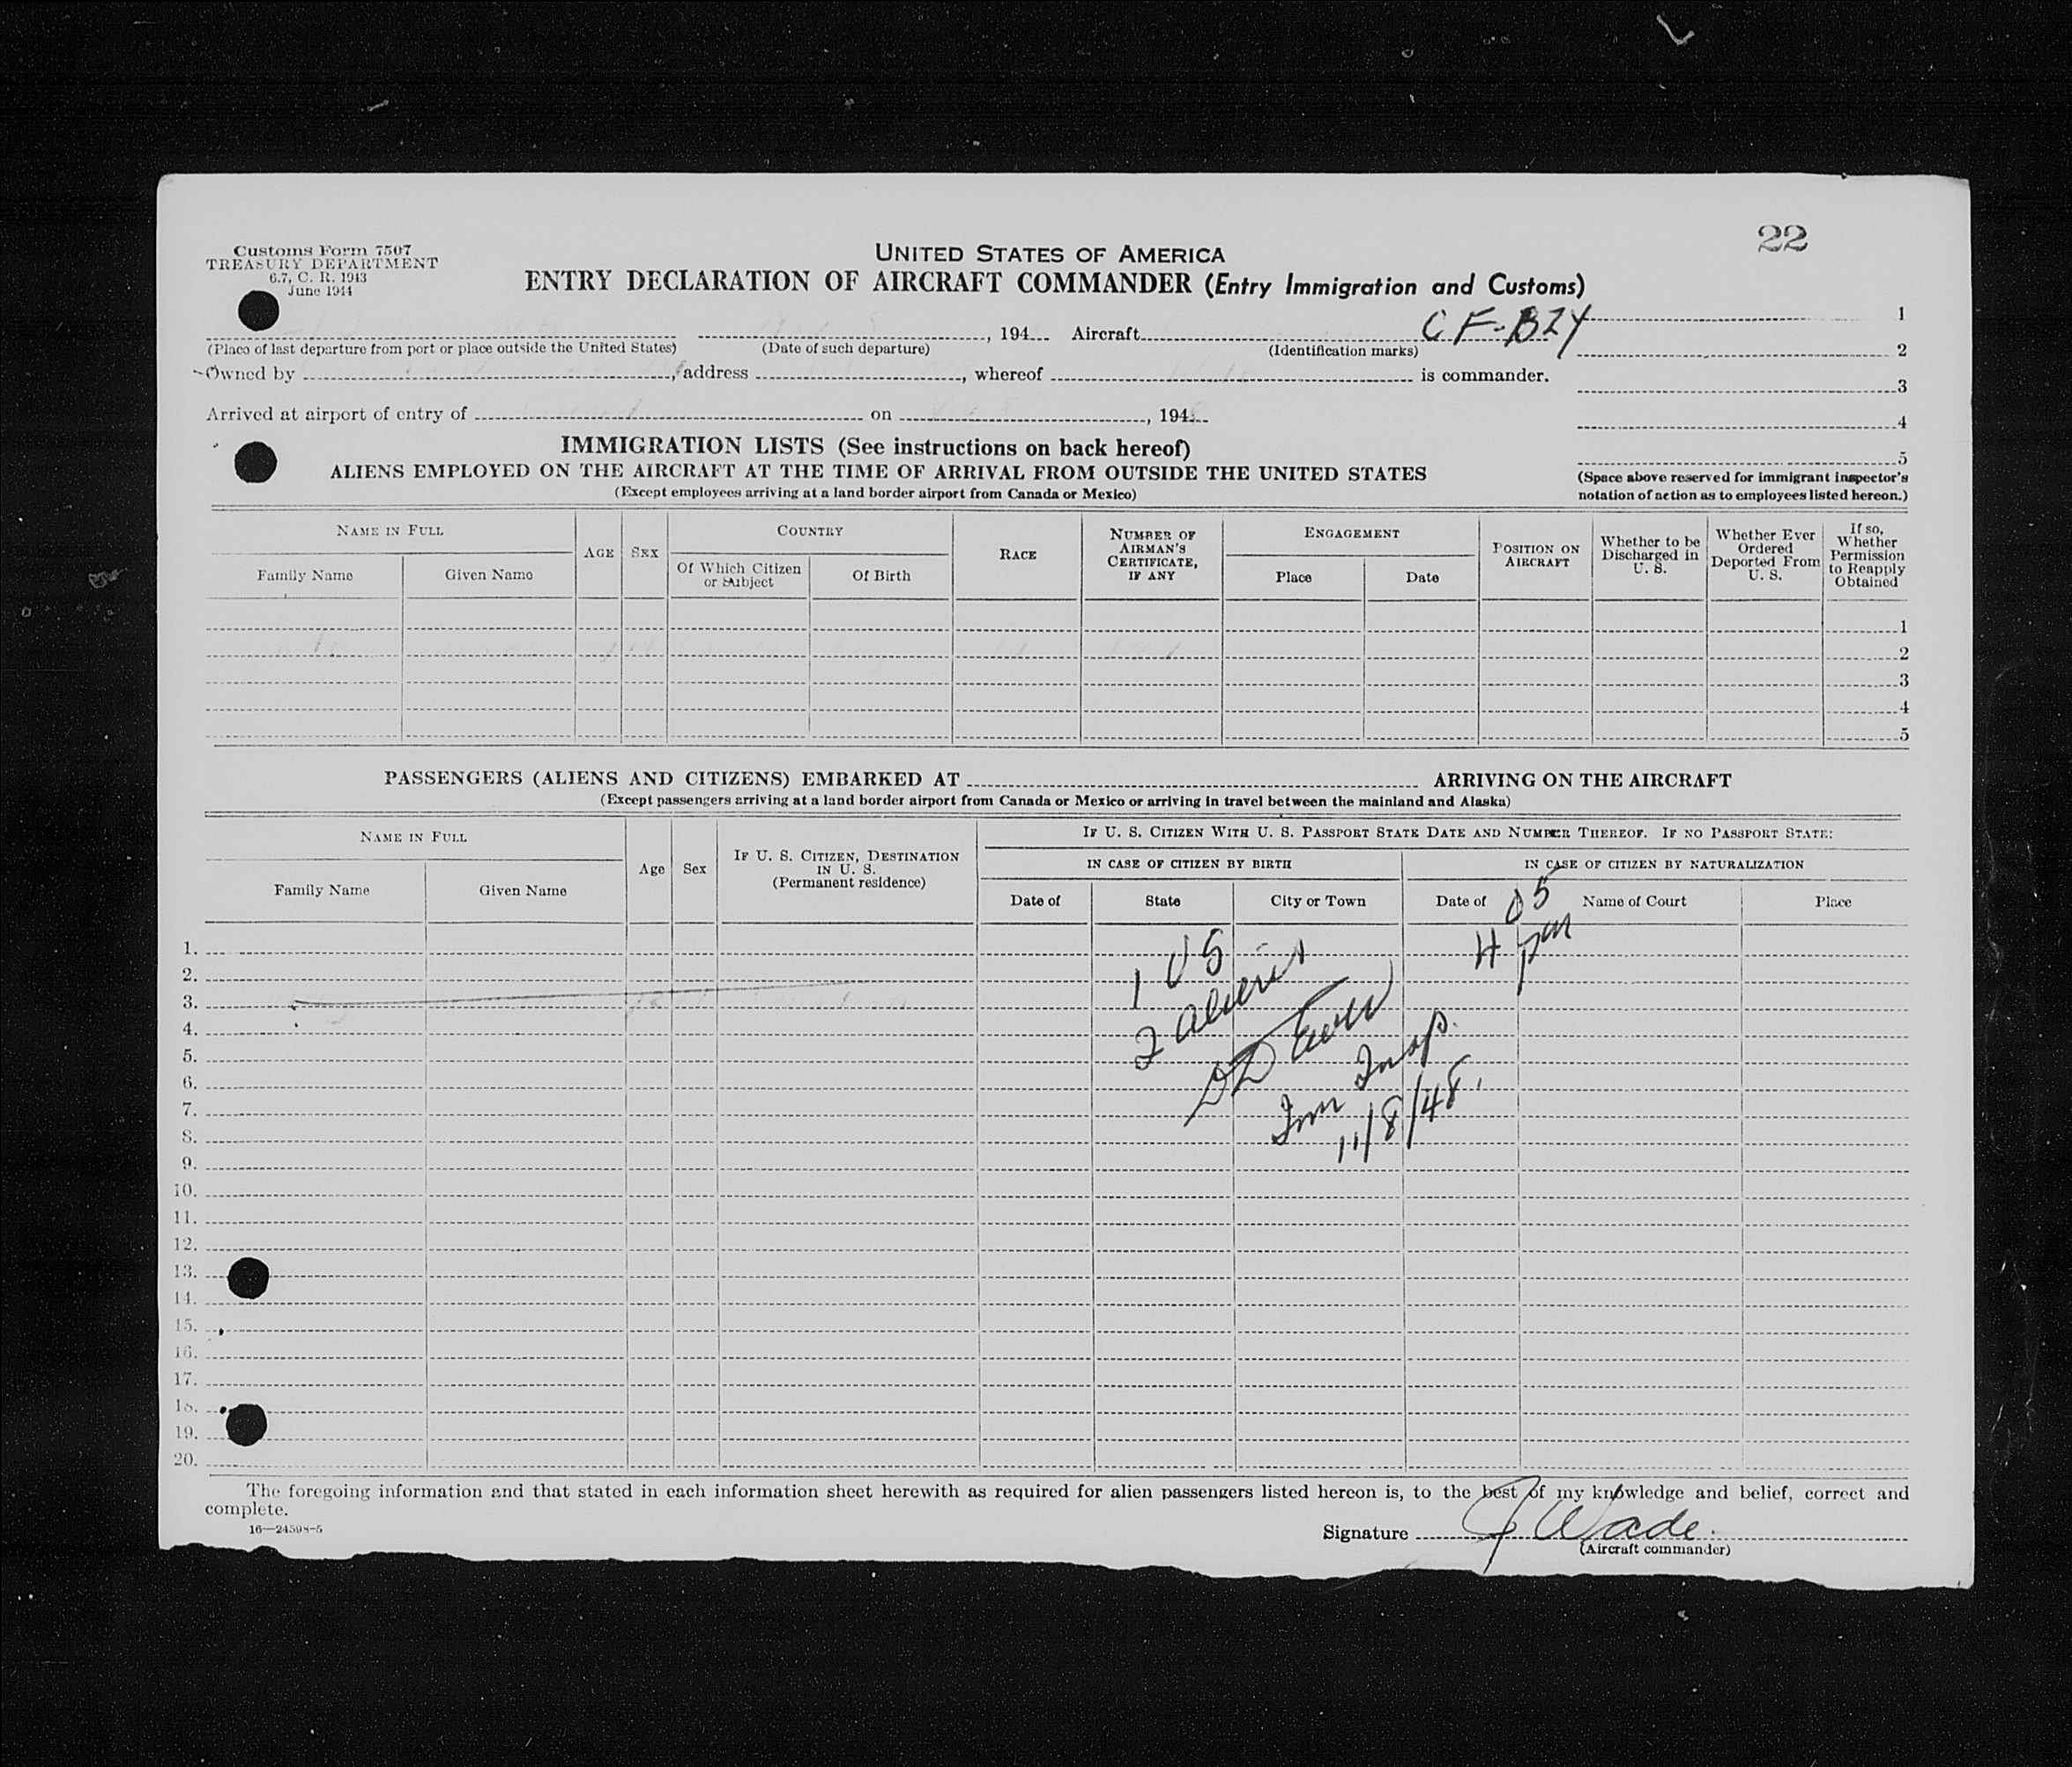 22
Customs Form 7507
TREASURY DEPARTMENT
6.7, C. R. 1943
June 1944
UNITED STATES OF AMERICA
ENTRY DECLARATION OF AIRCRAFT COMMANDER (Entry Immigration and Customs)
, 194 Aircraft CF-BZY 1
(Place of last departure from port or place outside the United States) (Date of such departure) (Identification marks) 2
Owned by , address , whereof is commander. 3
Arrived at airport of entry of on , 194 4
5
IMMIGRATION LISTS (See instructions on back hereof)
ALIENS EMPLOYED ON THE AIRCRAFT AT THE TIME OF ARRIVAL FROM OUTSIDE THE UNITED STATES
(Except employees arriving at a land border airport from Canada or Mexico)
(Space above reserved for immigrant inspector's
notation of action as to employees listed hereon.)
NAME IN FULL
Family Name Given Name
AGE SEX
COUNTRY
Of Which Citizen or Subject
Of Birth
RACE
NUMBER OF AIRMAN'S CERTIFICATE, IF ANY
ENGAGEMENT
Place Date
POSITION ON AIRCRAFT
Whether to be Discharged in U. S.
Whether Ever Ordered Deported From U. S.
If so, Whether Permission to Reapply Obtained
1
2
3
4
5
PASSENGERS (ALIENS AND CITIZENS) EMBARKED AT ARRIVING ON THE AIRCRAFT
(Except passengers arriving at a land border airport from Canada or Mexico or arriving in travel between the mainland and Alaska)
NAME IN FULL
Family Name Given Name
Age Sex
IF U. S. CITIZEN, DESTINATION IN U. S.
(Permanent residence)
IF U. S. CITIZEN WITH U. S. PASSPORT STATE DATE AND NUMBER THEREOF. IF NO PASSPORT STATE:
IN CASE OF CITIZEN BY BIRTH IN CASE OF CITIZEN BY NATURALIZATION
Date of State City or Town Date of Name of Court Place
05
4 pm
1 US
2 aliens
Imm Insp.
11/8/48
1.
2.
3.
4.
5.
6.
7.
8.
9.
10.
11.
12.
13.
14.
15.
16.
17.
18.
19.
20.
The foregoing information and that stated in each information sheet herewith as required for alien passengers listed hereon is, to the best of my knowledge and belief, correct and
complete.
16—24598-5
Signature J Wade
(Aircraft commander)